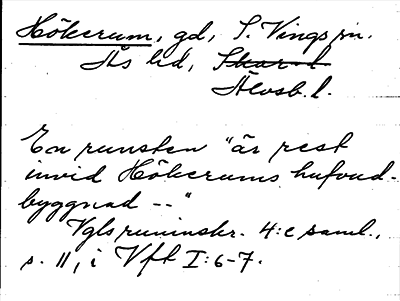 Hökerum, gd, S. Vings sn.
Ås hd, Skar. l
Älvsb. l.
En runsten "är rest
invid Hökerums hufvud-
byggnad --"
Vgls runinskr. 4:e saml.,
s. 11, i Vft I:6-7.